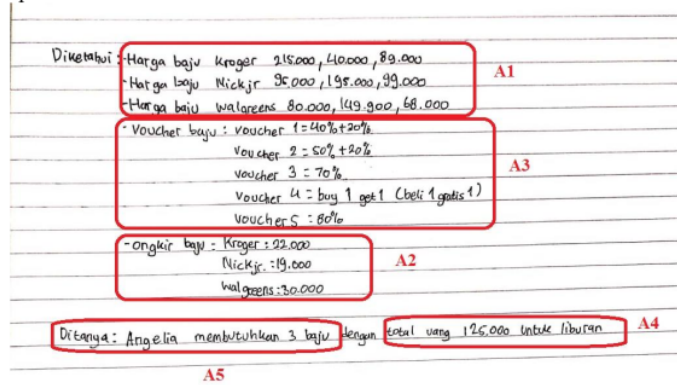 Diketahui : - Harga baju Kroger 215.000, 40.000, 89.000
- Harga baju Nickjr 95.000, 195.000, 99.000
- Harga baju walgreens 80.000, 149.900, 68.000
A1
- Voucher baju : voucher 1 = 40% + 20%
voucher 2 = 50% + 20%
voucher 3 = 70%
voucher 4 = buy 1 get 1 (beli 1 gratis 1)
voucher 5 = 80%
A3
- ongkir baju : Kroger : 22.000
Nickjr. : 19.000
walgreens : 30.000
A2
Ditanya : Angelia membutuhkan 3 baju dengan total uang 125.000 untuk liburan
A4
A5